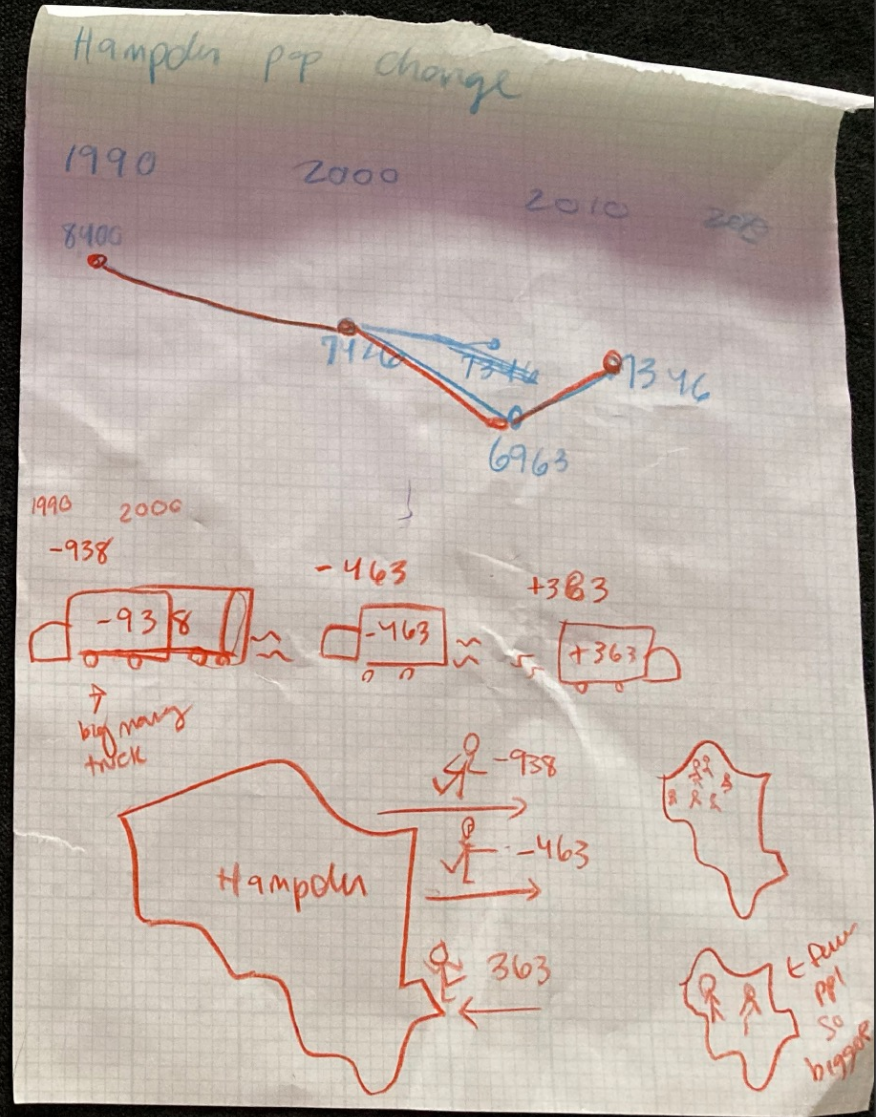 Hampden pop change
1990 2000 2010
8400
7426
7346
7346
6963
1990 2000
-938 -463 +363
-938 -463 +363
big
truck
-938
-463
Hampden
363
ppl
so
bigger